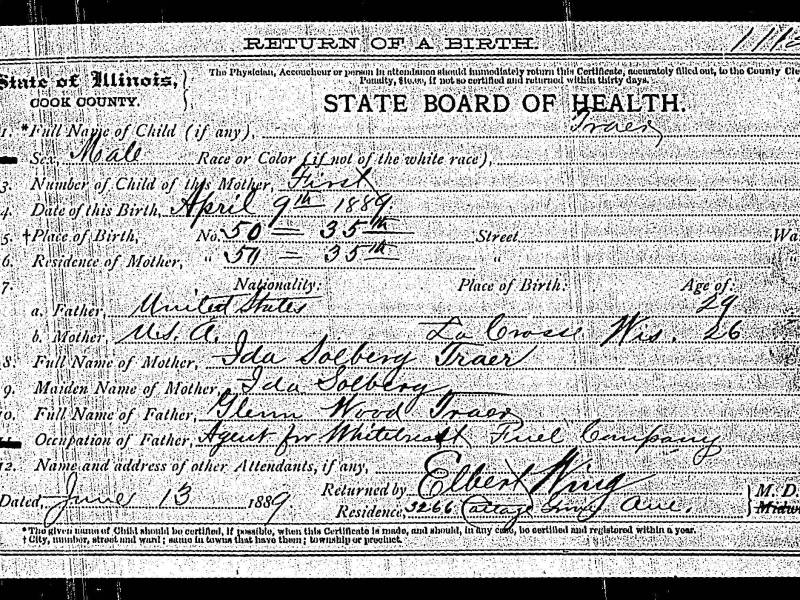 RETURN OF A BIRTH.
State of Illinois,
COOK COUNTY.
The Physician, Accoucheur or person in attendance should immediately return this Certificate, accurately filled out, to the County Cle
Penalty, $10.00, if not so certified and returned within thirty days.
STATE BOARD OF HEALTH.
1. *Full Name of Child (if any), Traer
Sex, Male Race or Color (if not of the white race),
3. Number of Child of this Mother, First
4. Date of this Birth, April 9th 1889.
5. †Place of Birth, No. 50 = 35th Street Wa
6. Residence of Mother, " 50 = 35th "
7. Nationality: Place of Birth: Age of:
a. Father, United States 29
b. Mother, U.S.A. La Crosse Wis. 26
8. Full Name of Mother, Ida Solberg Traer
9. Maiden Name of Mother, Ida Solberg
10. Full Name of Father, Glenn Wood Traer
11. Occupation of Father, Agent for Whitebreast Fuel Company
12. Name and address of other Attendants, if any,
Dated, June 13 1889. Returned by Elbert Wing M. D.
Residence, 3266 Cottage Grove Ave. Midw
*The given name of Child should be certified, if possible, when this Certificate is made, and should, in any case, be certified and registered within a year.
†City, number, street and ward; same in towns that have them; township or precinct.